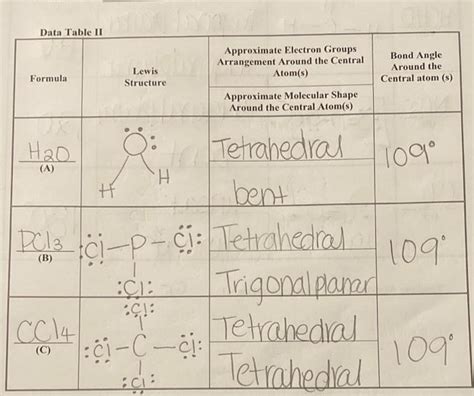 Data Table II
Formula
Lewis
Structure
Approximate Electron Groups
Arrangement Around the Central
Atom(s)
Approximate Molecular Shape
Around the Central Atom(s)
Bond Angle
Around the
Central atom (s)
H2O
(A)
O
H
H
Tetrahedral
bent
109°
PCl3
(B)
:Cl-P-Cl:
:Cl:
Tetrahedral
Trigonal planar
109°
CCl4
(C)
:Cl:
:Cl-C-Cl:
:Cl:
Tetrahedral
Tetrahedral
109°